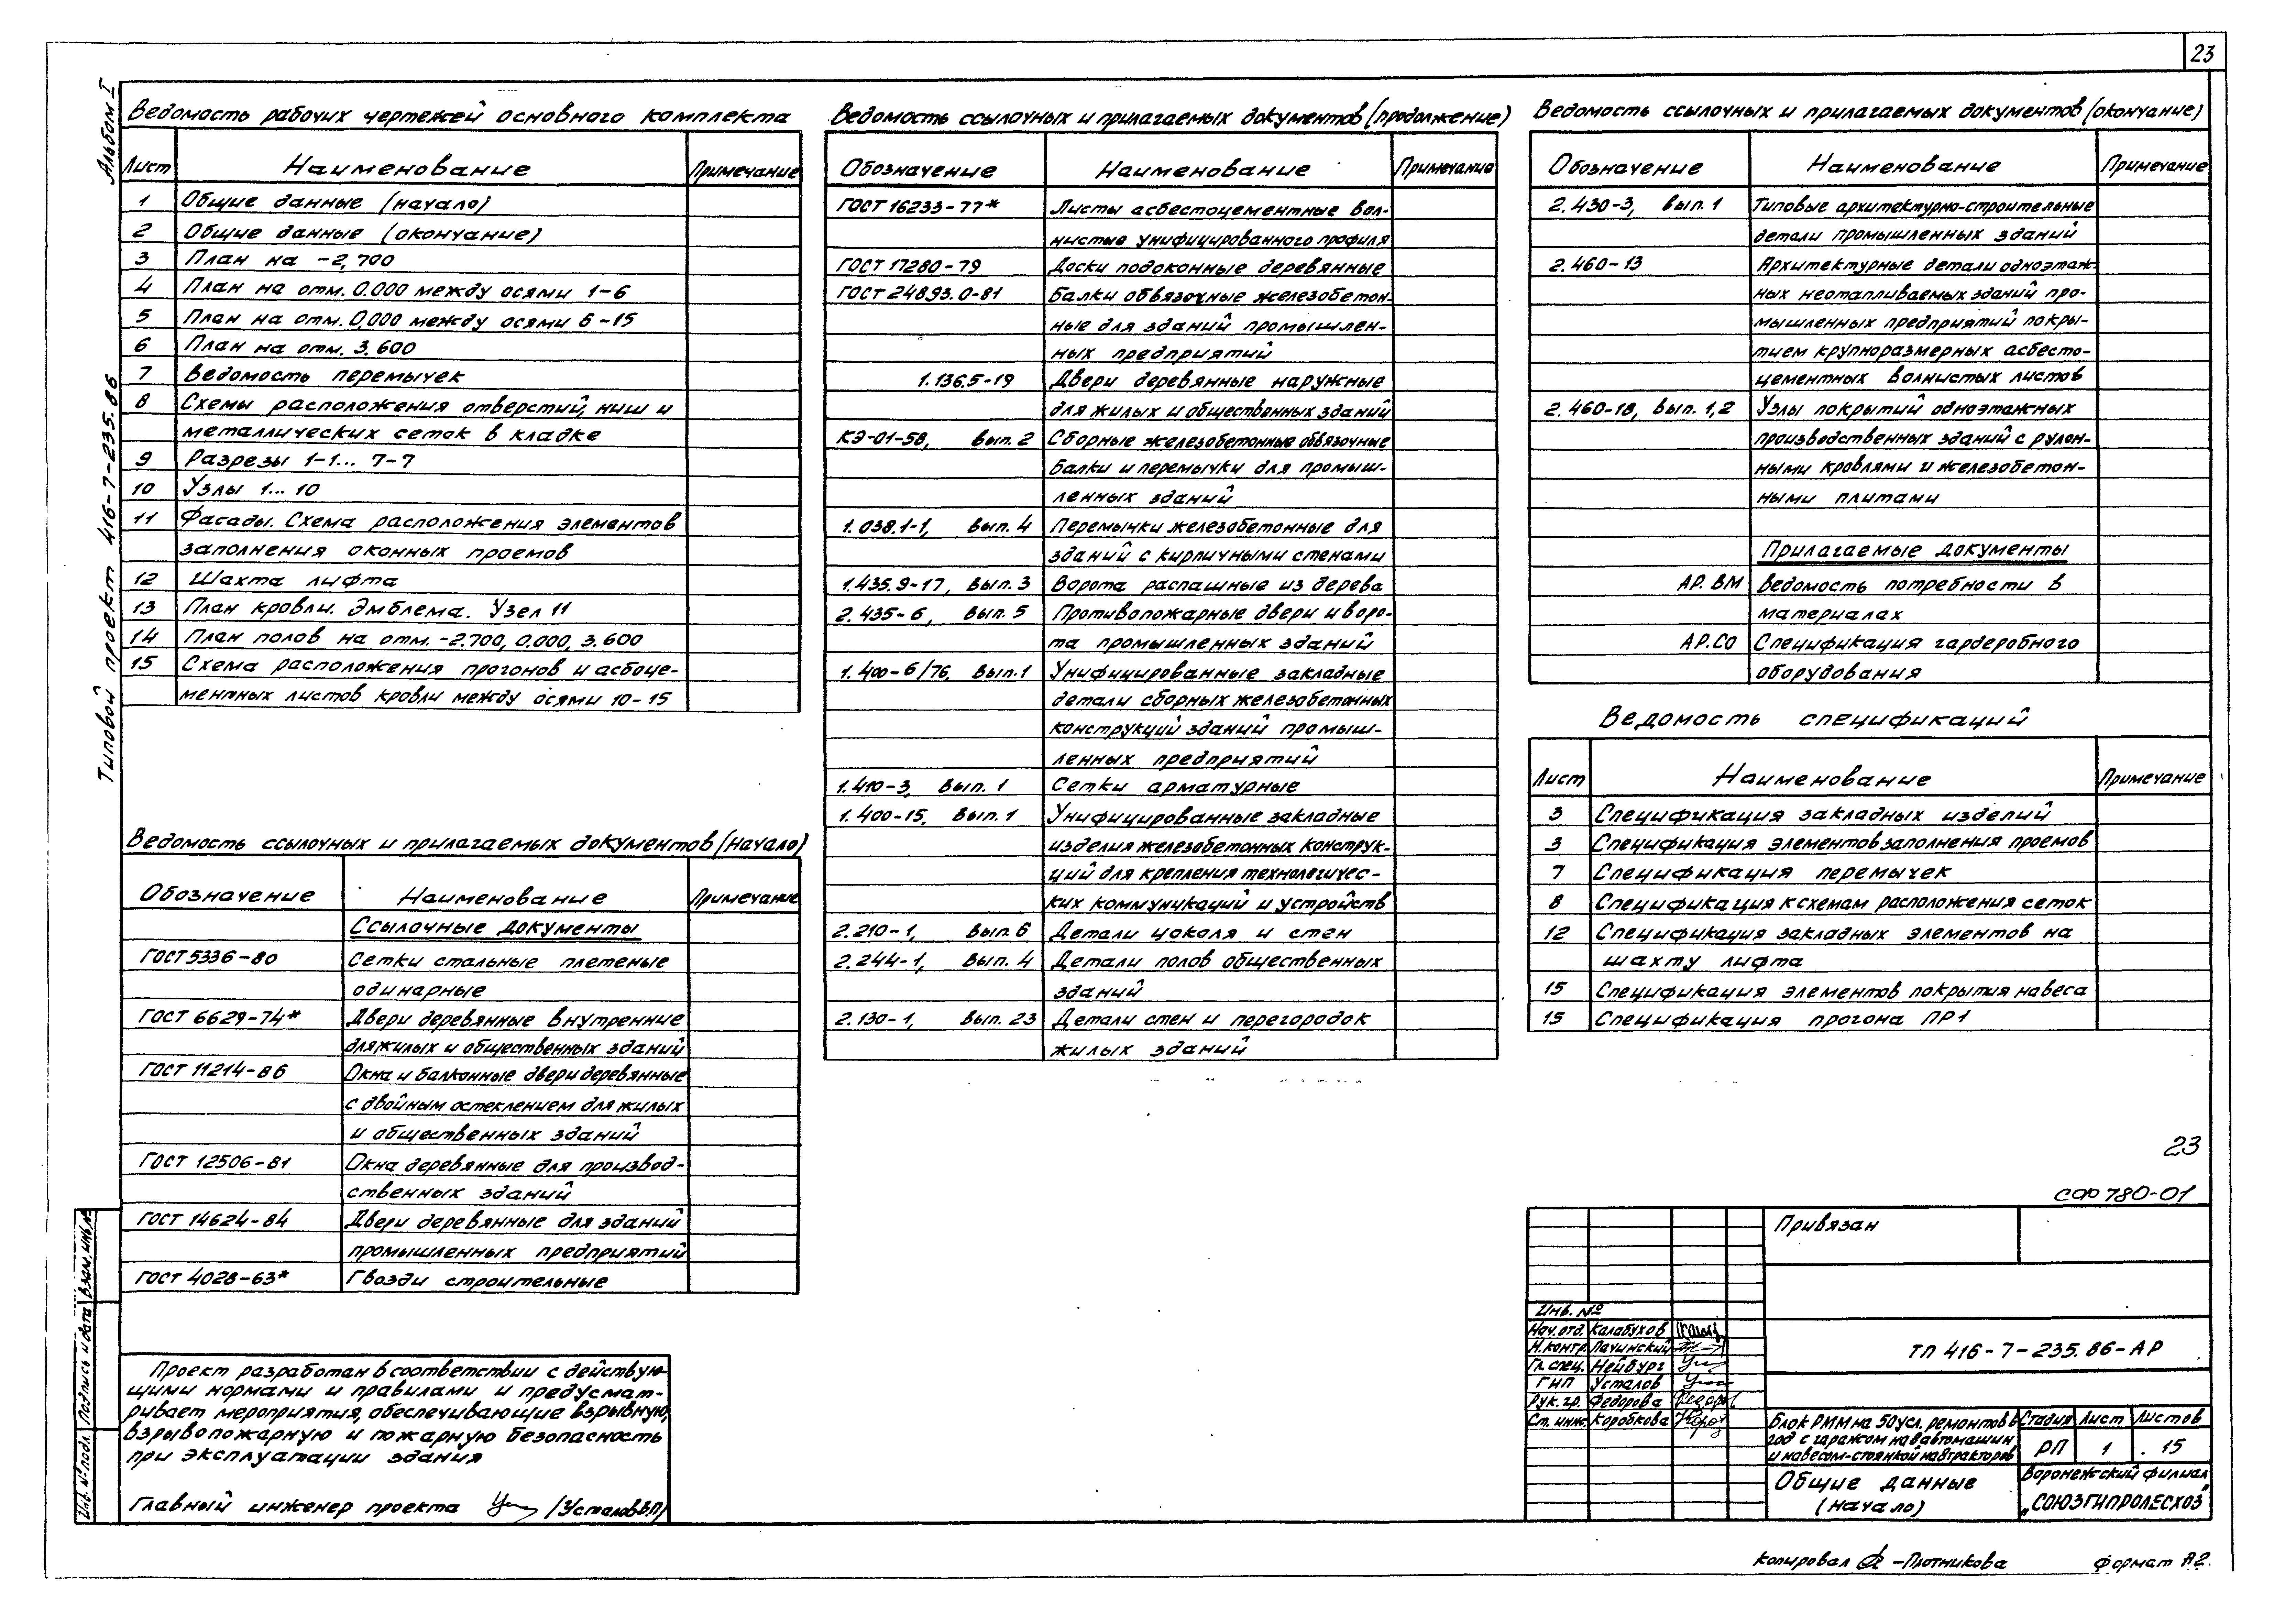 23
Альбом I
Типовой проект 416-7-235.86
Ведомость рабочих чертежей основного комплекта
Лист Наименование Примечание
1 Общие данные (начало)
2 Общие данные (окончание)
3 План на -2,700
4 План на отм. 0.000 между осями 1-6
5 План на отм. 0,000 между осями 6-15
6 План на отм. 3.600
7 Ведомость перемычек
8 Схемы расположения отверстий, ниш и
металлических сеток в кладке
9 Разрезы 1-1... 7-7
10 Узлы 1... 10
11 Фасады. Схема расположения элементов
заполнения оконных проемов
12 Шахта лифта
13 План кровли. Эмблема. Узел 11
14 План полов на отм. -2.700, 0,000, 3.600
15 Схема расположения прогонов и асбоце-
ментных листов кровли между осями 10-15
Ведомость ссылочных и прилагаемых документов (начало)
Обозначение Наименование Примечание
Ссылочные документы
ГОСТ 5336-80 Сетки стальные плетеные
одинарные
ГОСТ 6629-74* Двери деревянные внутренние
для жилых и общественных зданий
ГОСТ 11214-86 Окна и балконные двери деревянные
с двойным остеклением для жилых
и общественных зданий
ГОСТ 12506-81 Окна деревянные для производ-
ственных зданий
ГОСТ 14624-84 Двери деревянные для зданий
промышленных предприятий
ГОСТ 4028-63* Гвозди строительные
Проект разработан в соответствии с действую-
щими нормами и правилами и предусмат-
ривает мероприятия, обеспечивающие взрывную,
взрывопожарную и пожарную безопасность
при эксплуатации здания
Главный инженер проекта /Усталов В.П/
Ведомость ссылочных и прилагаемых документов (продолжение)
Обозначение Наименование Примечание
ГОСТ 16233-77* Листы асбестоцементные вол-
нистые унифицированного профиля
ГОСТ 17280-79 Доски подоконные деревянные
ГОСТ 24893.0-81 Балки обвязочные железобетон-
ные для зданий промышлен-
ных предприятий
1.136.5-19 Двери деревянные наружные
для жилых и общественных зданий
КЭ-01-58, вып. 2 Сборные железобетонные обвязочные
балки и перемычки для промыш-
ленных зданий
1.038.1-1, вып. 4 Перемычки железобетонные для
зданий с кирпичными стенами
1.435.9-17, вып. 3 Ворота распашные из дерева
2.435-6, вып. 5 Противопожарные двери и воро-
та промышленных зданий
1.400-6/76, вып.1 Унифицированные закладные
детали сборных железобетонных
конструкций зданий промыш-
ленных предприятий
1.410-3, вып. 1 Сетки арматурные
1.400-15, вып. 1 Унифицированные закладные
изделия железобетонных конструк-
ций для крепления технологичес-
ких коммуникаций и устройств
2.210-1, вып. 6 Детали цоколя и стен
2.244-1, вып. 4 Детали полов общественных
зданий
2.130-1, вып. 23 Детали стен и перегородок
жилых зданий
Ведомость ссылочных и прилагаемых документов (окончание)
Обозначение Наименование Примечание
2.430-3, вып. 1 Типовые архитектурно-строительные
детали промышленных зданий
2.460-13 Архитектурные детали одноэтаж-
ных неотапливаемых зданий про-
мышленных предприятий покры-
тием крупноразмерных асбесто-
цементных волнистых листов
2.460-18, вып. 1,2 Узлы покрытий одноэтажных
производственных зданий с рулон-
ными кровлями и железобетон-
ными плитами
Прилагаемые документы
АР.ВМ Ведомость потребности в
материалах
АР.СО Спецификация гардеробного
оборудования
Ведомость спецификаций
Лист Наименование Примечание
3 Спецификация закладных изделий
3 Спецификация элементов заполнения проемов
7 Спецификация перемычек
8 Спецификация к схемам расположения сеток
12 Спецификация закладных элементов на
шахту лифта
15 Спецификация элементов покрытия навеса
15 Спецификация прогона ПР1
23
СФ 780-01
Привязан
Инв. №
Нач. отд. Калабухов
Н. контр. Лачинский
Гл. спец. Нейбург
ГИП Усталов
Рук. гр. Федорова
Ст. инж. Коробкова
ТП 416-7-235.86-АР
Блок РММ на 50 усл. ремонтов в
год с гаражом на 8 автомашин
и навесом-стоянкой на 8 тракторов
Стадия Лист Листов
РП 1 15
Общие данные
(начало)
Воронежский филиал
"СОЮЗГИПРОЛЕСХОЗ"
Инв. № подл. Подпись и дата Взам. инв. №
Копировал -Плотникова Формат А2